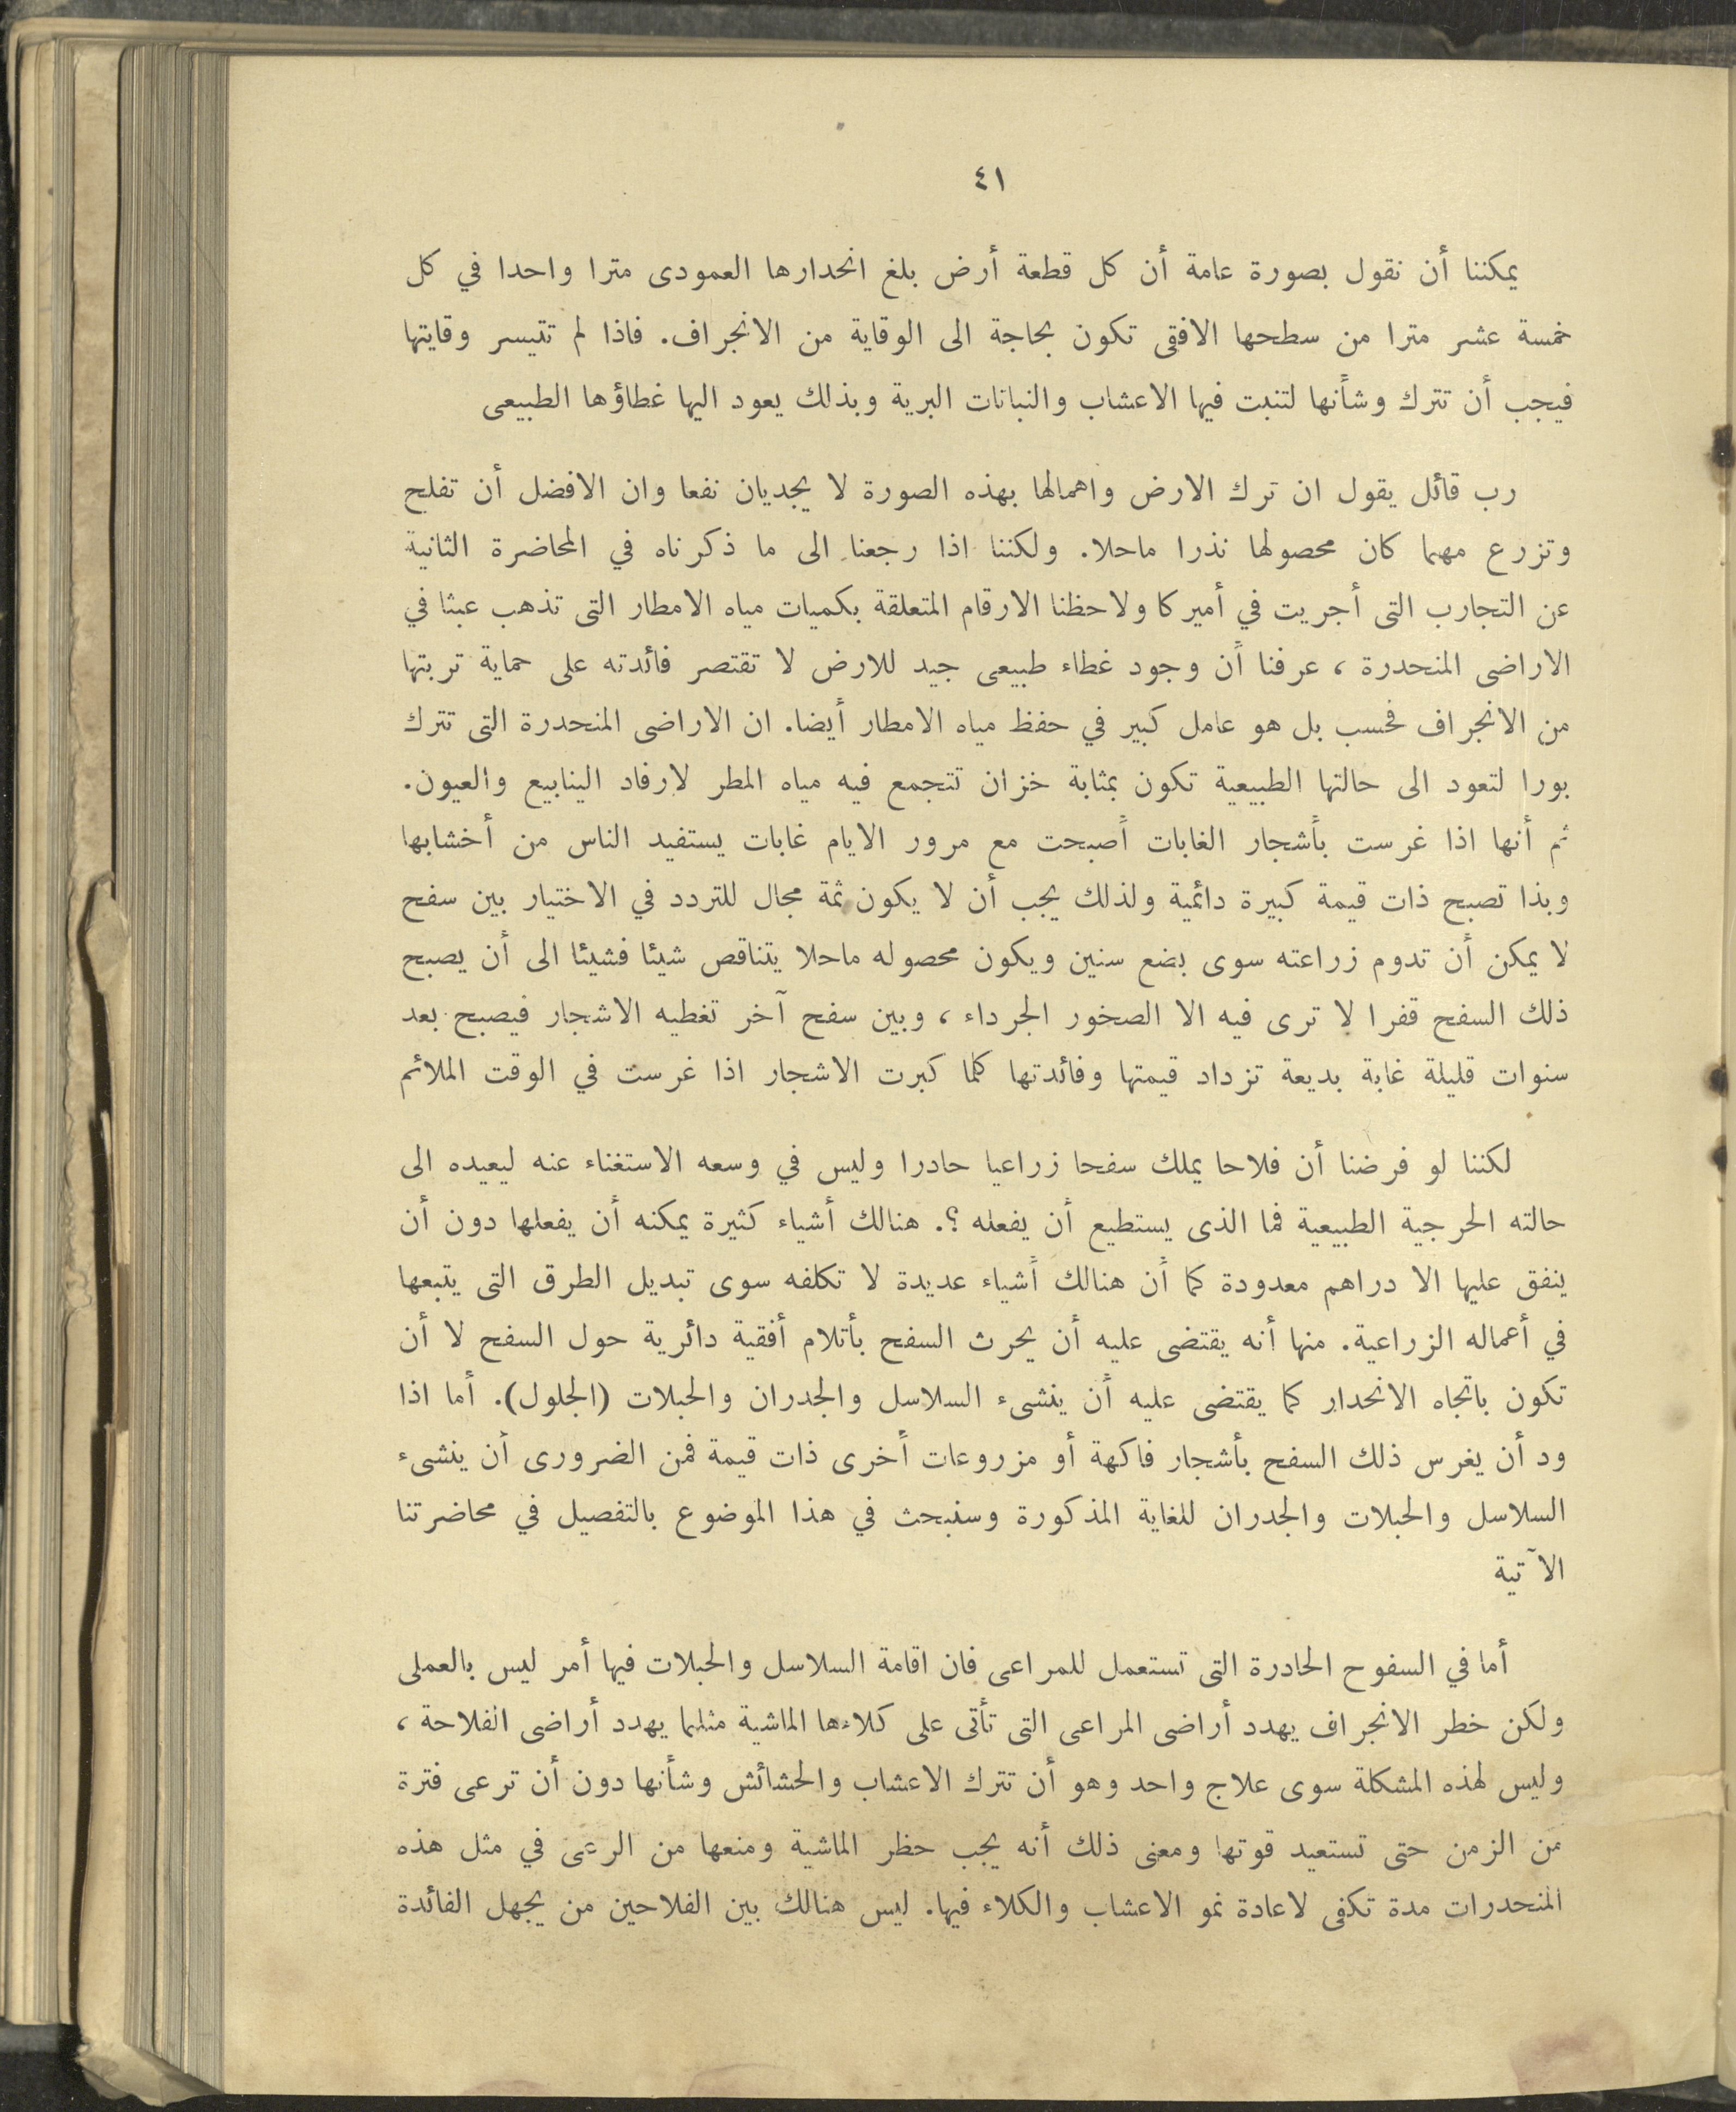 ٤١
يمكننا أن نقول بصورة عامة أن كل قطعة أرض بلغ انحدارها العمودى مترا واحدا في كل
خمسة عشر مترا من سطحها الافقى تكون بحاجة الى الوقاية من الانجراف. فاذا لم تتيسر وقايتها
فيجب أن تترك وشأنها لتنبت فيها الاعشاب والنباتات البرية وبذلك يعود اليها غطاؤها الطبيعى
رب قائل يقول ان ترك الارض واهمالها بهذه الصورة لا يجديان نفعا وان الافضل أن تفلح
وتزرع مهما كان محصولها نذرا ماحلا. ولكننا اذا رجعنا الى ما ذكرناه في المحاضرة الثانية
عن التجارب التى أجريت في أميركا ولاحظنا الارقام المتعلقة بكميات مياه الامطار التى تذهب عبثا في
الاراضى المنحدرة ، عرفنا أن وجود غطاء طبيعى جيد للارض لا تقتصر فائدته على حماية تربتها
من الانجراف فحسب بل هو عامل كبير في حفظ مياه الامطار أيضا. ان الاراضى المنحدرة التى تترك
بورا لتعود الى حالتها الطبيعية تكون بمثابة خزان تتجمع فيه مياه المطر لارفاد الينابيع والعيون.
ثم أنها اذا غرست بأشجار الغابات أصبحت مع مرور الايام غابات يستفيد الناس من أخشابها
وبذا تصبح ذات قيمة كبيرة دائمية ولذلك يجب أن لا يكون ثمة مجال للتردد في الاختيار بين سفح
لا يمكن أن تدوم زراعته سوى بضع سنين ويكون محصوله ماحلا يتناقص شيئا فشيئا الى أن يصبح
ذلك السفح قفرا لا ترى فيه الا الصخور الجرداء ، وبين سفح آخر تغطيه الاشجار فيصبح بعد
سنوات قليلة غابة بديعة تزداد قيمتها وفائدتها كلما كبرت الاشجار اذا غرست في الوقت الملائم
لكننا لو فرضنا أن فلاحا يملك سفحا زراعيا حادرا وليس في وسعه الاستغناء عنه ليعيده الى
حالته الحرجية الطبيعية فما الذى يستطيع أن يفعله ؟. هنالك أشياء كثيرة يمكنه أن يفعلها دون أن
ينفق عليها الا دراهم معدودة كما أن هنالك أشياء عديدة لا تكلفه سوى تبديل الطرق التى يتبعها
في أعماله الزراعية. منها أنه يقتضى عليه أن يحرث السفح بأتلام أفقية دائرية حول السفح لا أن
تكون باتجاه الانحدار كما يقتضى عليه أن ينشىء السلاسل والجدران والحبلات (الجلول). أما اذا
ود أن يغرس ذلك السفح بأشجار فاكهة أو مزروعات أخرى ذات قيمة فمن الضرورى أن ينشىء
السلاسل والحبلات والجدران للغاية المذكورة وسنبحث في هذا الموضوع بالتفصيل في محاضرتنا
الآتية
أما في السفوح الحادرة التى تستعمل للمراعى فان اقامة السلاسل والحبلات فيها أمر ليس بالعملى
ولكن خطر الانجراف يهدد أراضى المراعى التى تأتى على كلاءها الماشية مثلما يهدد أراضى الفلاحة ،
وليس لهذه المشكلة سوى علاج واحد وهو أن تترك الاعشاب والحشائش وشأنها دون أن ترعى فترة
من الزمن حتى تستعيد قوتها ومعنى ذلك أنه يجب حظر الماشية ومنعها من الرعى في مثل هذه
المنحدرات مدة تكفى لاعادة نمو الاعشاب والكلاء فيها. ليس هنالك بين الفلاحين من يجهل الفائدة